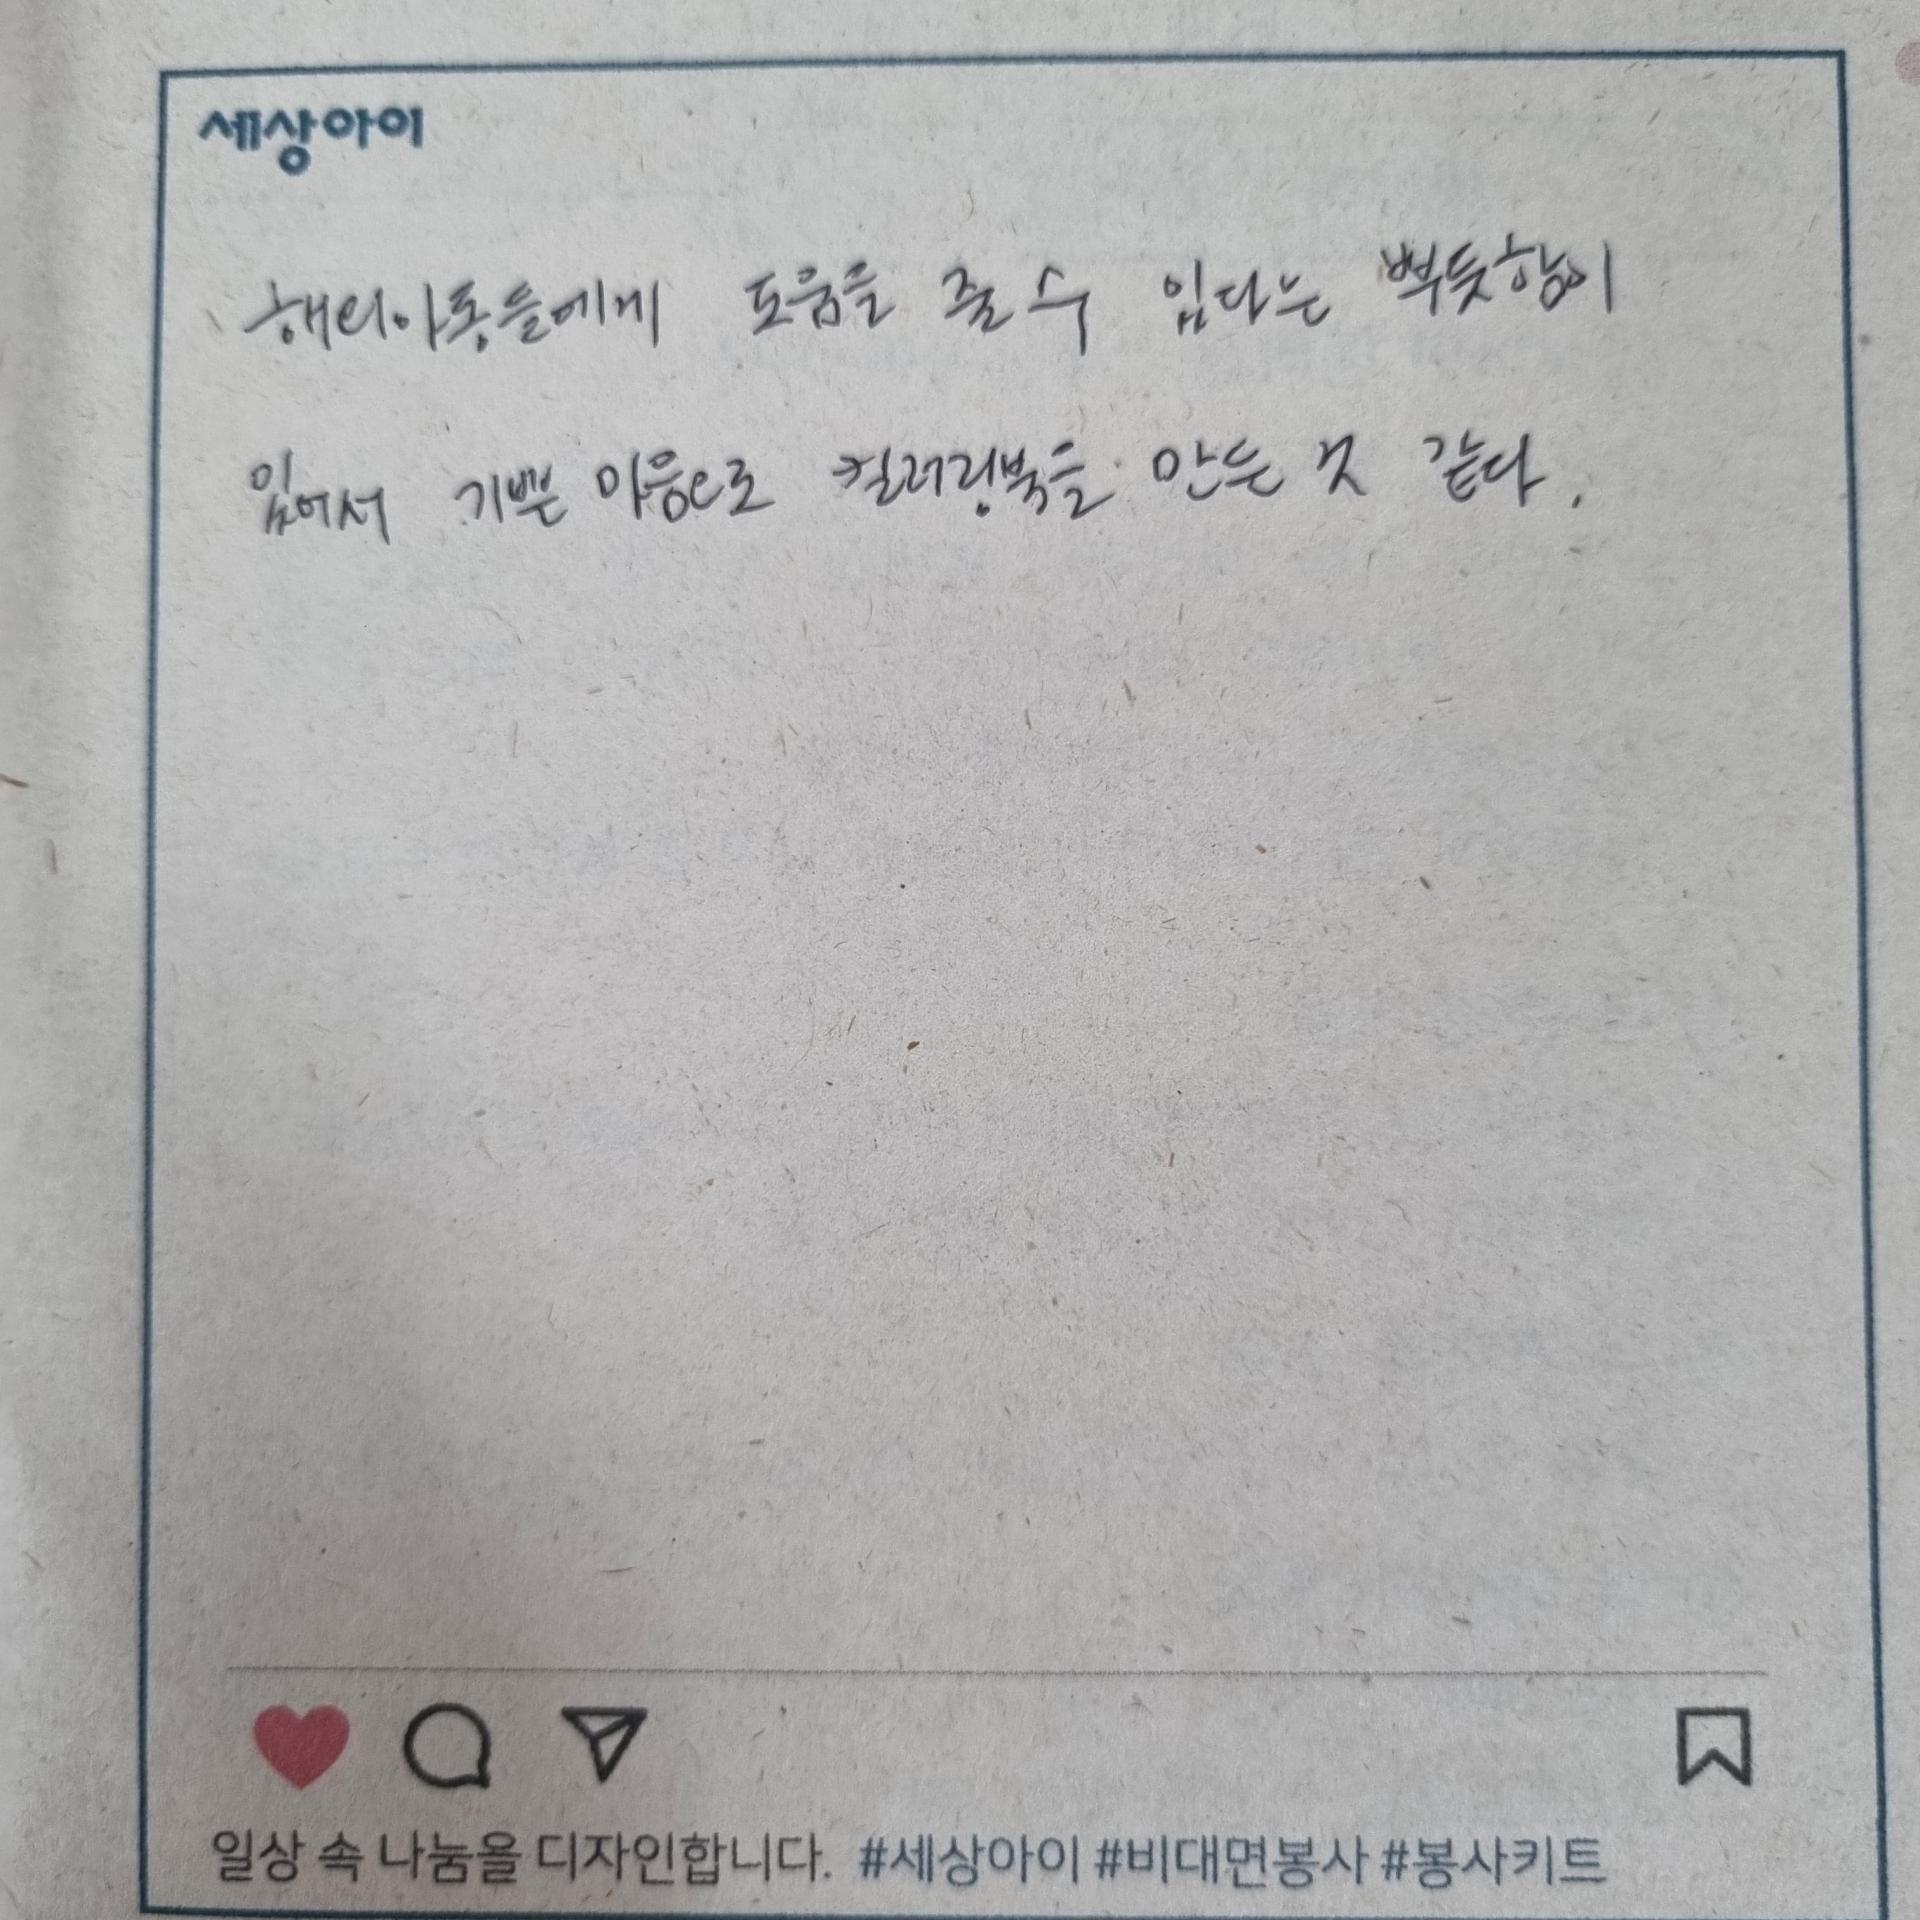 세상아이
해외아동들에게 도움을 줄 수 있다는 뿌듯함이
있어서 기쁜 마음으로 컬러링북을 만든 것 같다.
일상 속 나눔을 디자인합니다. #세상아이 #비대면봉사 #봉사키트